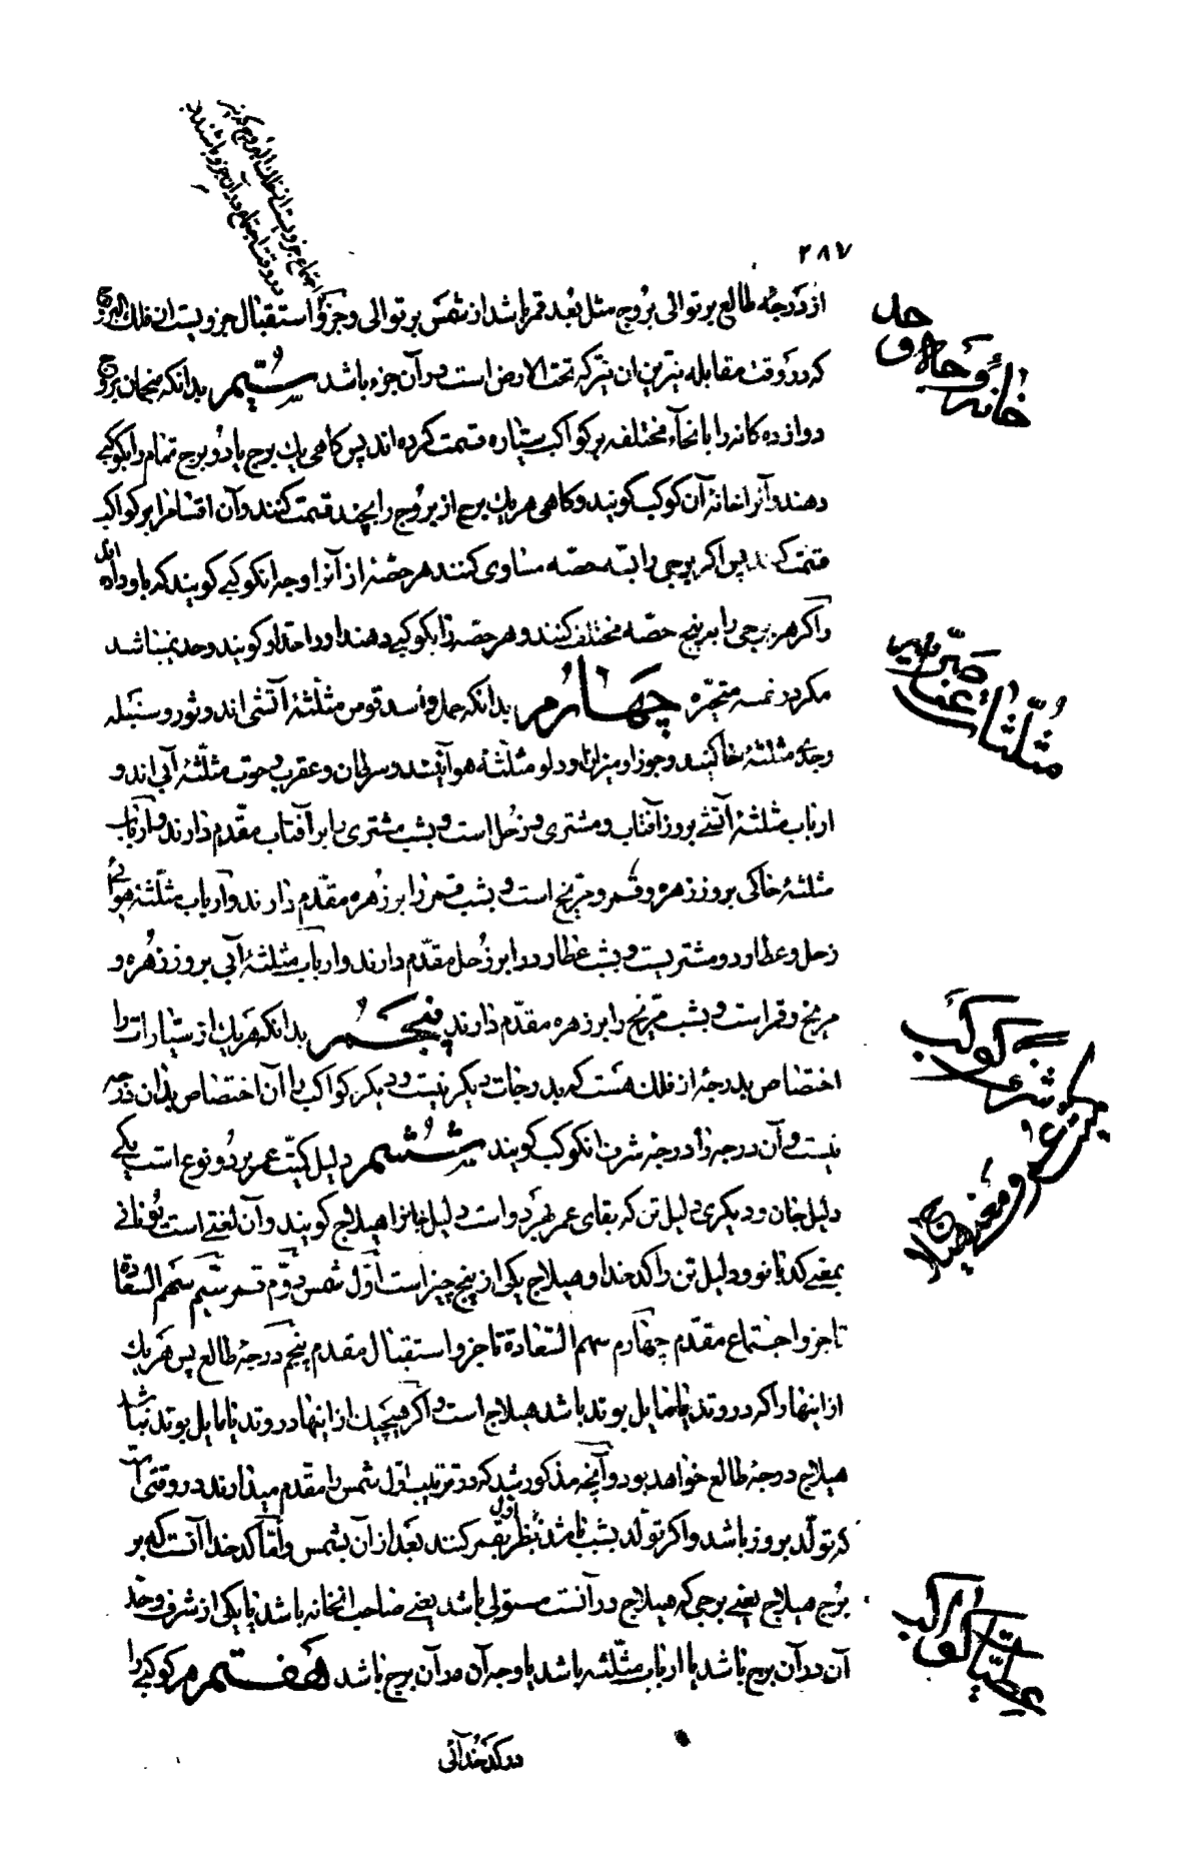 اجتماع جزویست از فلک البروج که نیرین
در وقت اجتماع در آن جزو باشند
۲۸۷
از درجهٔ طالع بر توالی بروج مثل بُعد قمر باشد از شمس بر توالی و جزؤ استقبال جزویست از فلک البروج
که در وقت مقابله نیّرین ان نیّر که تحت الارض است در آن جزء باشد سیُّم بدانکه منجمان بروج
دوازده کانه را بانحآء مختلفه بر کواکب سیّاره قسمت کرده اند پس کاهی یک برج یا دو برج تمام را بکوکبی
دهند و آنرا خانهٔ آن کوکب کویند و کاهی هر یک برج از بروج را بچند قسمت کنند و آن اقسام را بر کواکب
قسمت کنند پس اکر برجی را بسه حصّه مساوی کنند هر حصّهٔ از آنرا وجه انکوکبی کویند که باو داده اند
و اکر هر برجی را به پنج حصّه مختلف کنند و هر حصّه را بکوکبی دهند او را حدّ او کویند و حد نمیباشد
مکر در خمسه متحیّره چهارم بدانکه حمل و اسد قوس مثلّثهٔ آتشی اند و ثور و سنبله
و جدی مثلثهٔ خاکیند و جوزا و میزان و دلو مثلّثهٔ هوآئیند و سرطان و عقرب و حوت مثلّثهٔ آبی اند و
ارباب مثلثهٔ آتشی بروز آفتاب و مشتری و زحل است و بشب مشتری را بر آفتاب مقدّم دارند و ارباب
مثلثهٔ خاکی بروز زهره و قمر و مرّیخ است و بشب قمر را بر زهره مقدّم دارند و ارباب مثلّثهٔ هوائی
زحل و عطارد و مشتریست و بشب عطارد را بر زُحل مقدّم دارند و ارباب مثلثهٔ آبی بروز زهره و
مریخ و قمر است و بشب مرّیخ را بر زهره مقدّم دارند پنجم بدانکه هر یک از سیّارات را
اختصاص بدرجهٔ از فلک هست که بدرجات دیگر نیست و دیکر کواکب را آن اختصاص بدان درجه
نیست و آن درجه را درجهٔ شرف انکوکب کویند ششم دلیل کمیّت عمر بر دُو نوع است یکی
دلیل جان و دیکری دلیل تن که بقای عمر بهر دو است دلیل جانرا هیلاج کویند و آن لغتی است یونانی
بمعنی کدبانو و دلیل تن را کدخدا و هیلاج یکی از پنج چیز است اوّل شمس دوّم قمر سیّم سهم السّعادة
تا جزو اجتماع مقدّم چهارم سهم السّعادة تا جزو استقبال مقدم پنجم درجهٔ طالع پس هر یک
از اینها را که در وتد یا مایل بوتد باشد هیلاج است و اکر هیچیک از اینها در وتد یا مایل بوتد نباشد
هیلاج درجهٔ طالع خواهد بود و آنچه مذکور شد که در ترتیب اوّل شمس را مقدم میدارند در وقتی است
که تولّد بروز باشد و اکر تولّد بشب باشد نظر اول بقمر کنند بعد از آن بشمس و امّا کدخدا آنست که بر
برج هیلاج یعنی برجی که هیلاج در آنست مستولی باشد یعنی صاحب انخانه باشد یا یکی از شرف و حدّ
آن در آن برج باشد یا ارباب مثلّثه باشد یا وجه آن در آن برج باشد هفتم هر کوکبی را
در کدخدآئی
خانه و جاه و حد
مثلثات عناصر
شرف کوکب
کمیت عمر و معنی هیلاج
عطیات کواکب